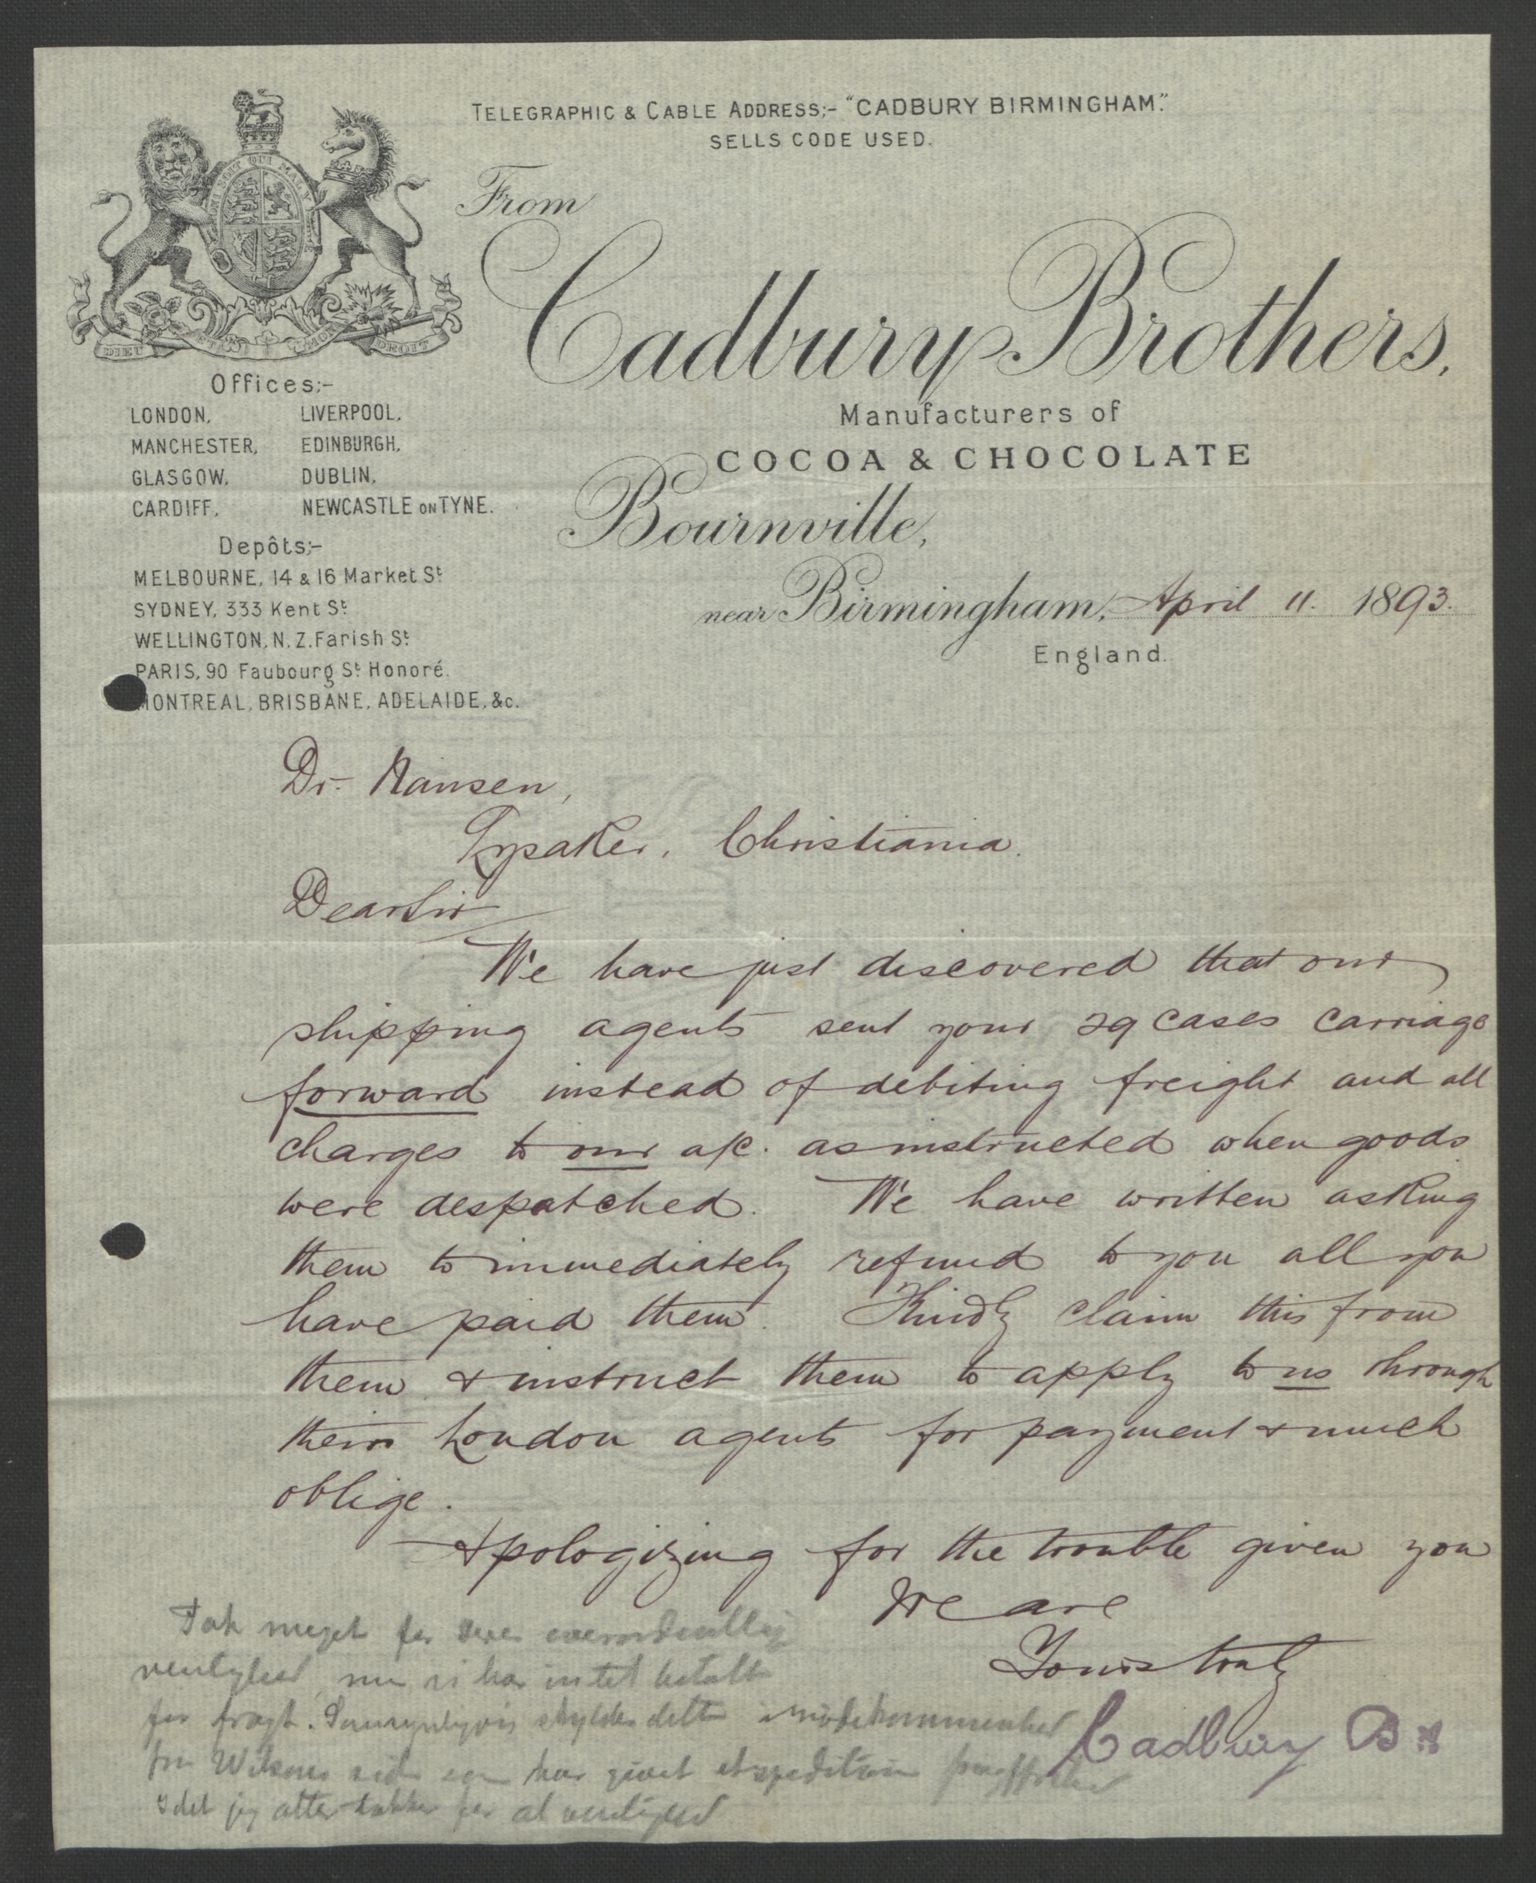 TELEGRAPHIC & CABLE ADDRESS:- "CADBURY BIRMINGHAM."
SELLS CODE USED.
From
Cadbury Brothers,
Manufacturers of
COCOA & CHOCOLATE
Bournville,
near Birmingham, April 11. 1893.
England.
HONI SOIT QUI MAL Y
DIEU ET MON DROIT
Offices:-
LONDON, LIVERPOOL,
MANCHESTER, EDINBURGH,
GLASGOW, DUBLIN,
CARDIFF, NEWCASTLE ON TYNE.
Depôts:-
MELBOURNE, 14 & 16 Market St
SYDNEY, 333 Kent St
WELLINGTON, N.Z. Farish St
PARIS, 90 Faubourg St Honoré.
MONTREAL, BRISBANE, ADELAIDE, &c.
Dr. Nansen,
Lysaker, Christiania.
Dear Sir
We have just discovered that our
shipping agents sent your 29 cases carriage
forward instead of debiting freight and all
charges to our a/c. as instructed when goods
were despatched. We have written asking
them to immediately refund to you all you
have paid them. Kindly claim this from
them & instruct them to apply to us through
their London agents for payment & much
oblige.
Apologizing for the trouble given you
We are
Yours truly
Cadbury Bros
Tak meget for Deres overordentlig
venlighed, men vi har intet betalt
for fragt. Sansynligvis skyldes dette imødekommenhed
fra Wilsons side som har givet
idet jeg atter takker for al venlighed